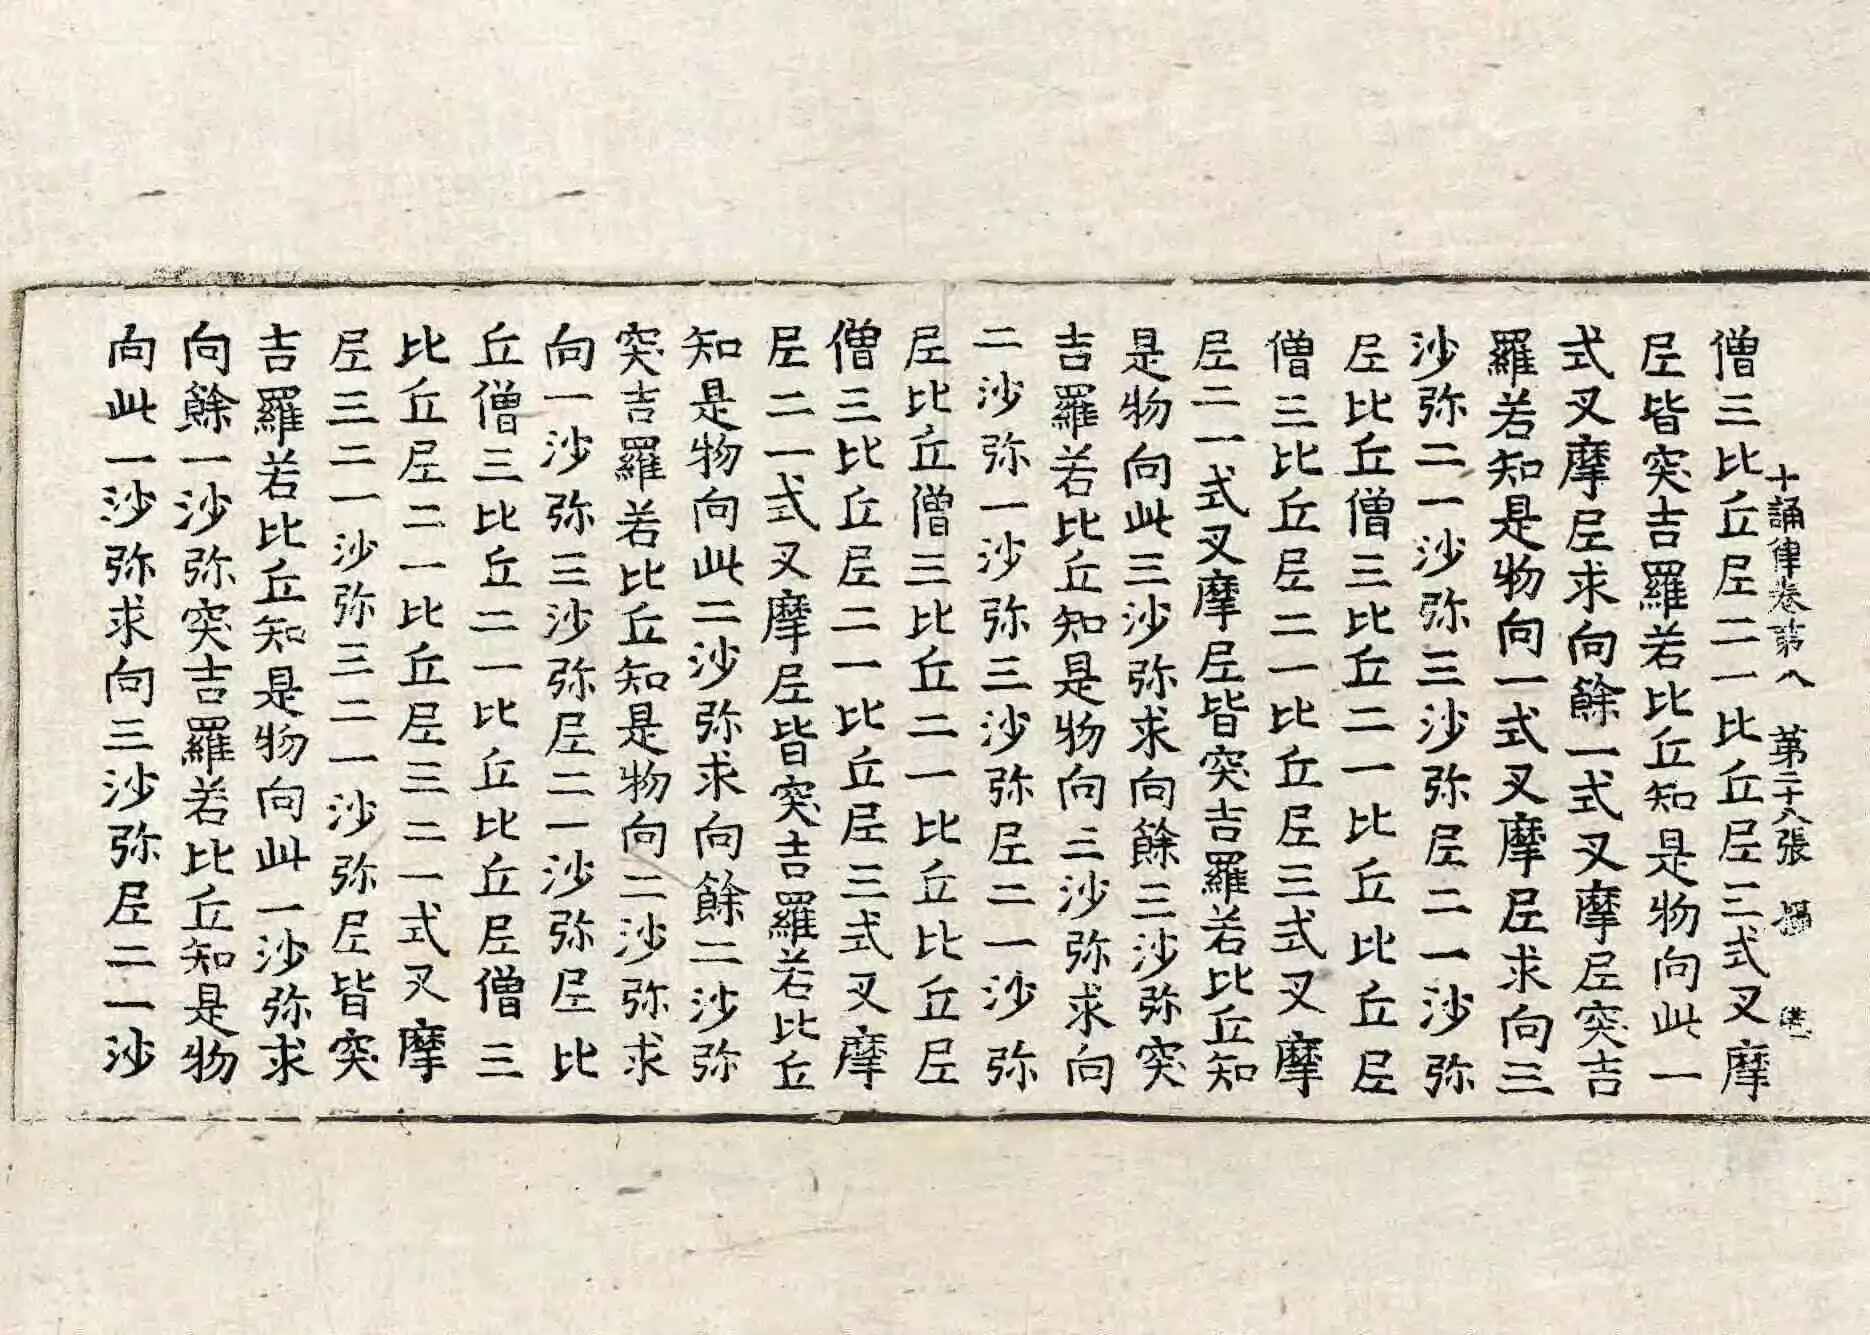 十誦律卷第八 第二十八張
僧三比丘尼二一比丘尼三式叉摩
尼皆突吉羅若比丘知是物向此一
式叉摩尼求向餘一式叉摩尼突吉
羅若知是物向一式叉摩尼求向三
沙弥二一沙弥三沙弥尼二一沙弥
尼比丘僧三比丘二一比丘比丘尼
僧三比丘尼二一比丘尼三式叉摩
尼二一式叉摩尼皆突吉羅若比丘知
是物向此三沙弥求向餘三沙弥突
吉羅若比丘知是物向三沙弥求向
二沙弥一沙弥三沙弥尼二一沙弥
尼比丘僧三比丘二一比丘比丘尼
僧三比丘尼二一比丘尼三式叉摩
尼二一式叉摩尼皆突吉羅若比丘
知是物向此二沙弥求向餘二沙弥
突吉羅若比丘知是物向二沙弥求
向一沙弥三沙弥尼二一沙弥尼比
丘僧三比丘二一比丘比丘尼僧三
比丘尼二一比丘尼三二一式叉摩
尼三二一沙弥三二一沙弥尼皆突
吉羅若比丘知是物向此一沙弥求
向餘一沙弥突吉羅若比丘知是物
向此一沙弥求向三沙弥尼二一沙